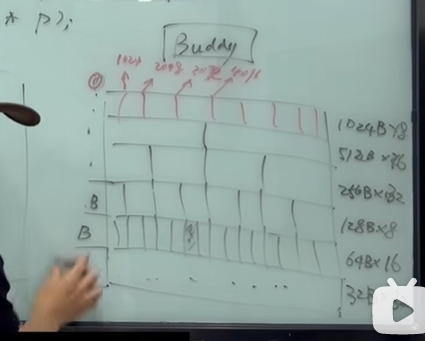 * p);
Buddy
1024 2048 4016
0
1024B×8
512B ×16
256B×32
B 128B×8
B 64B×16
32B